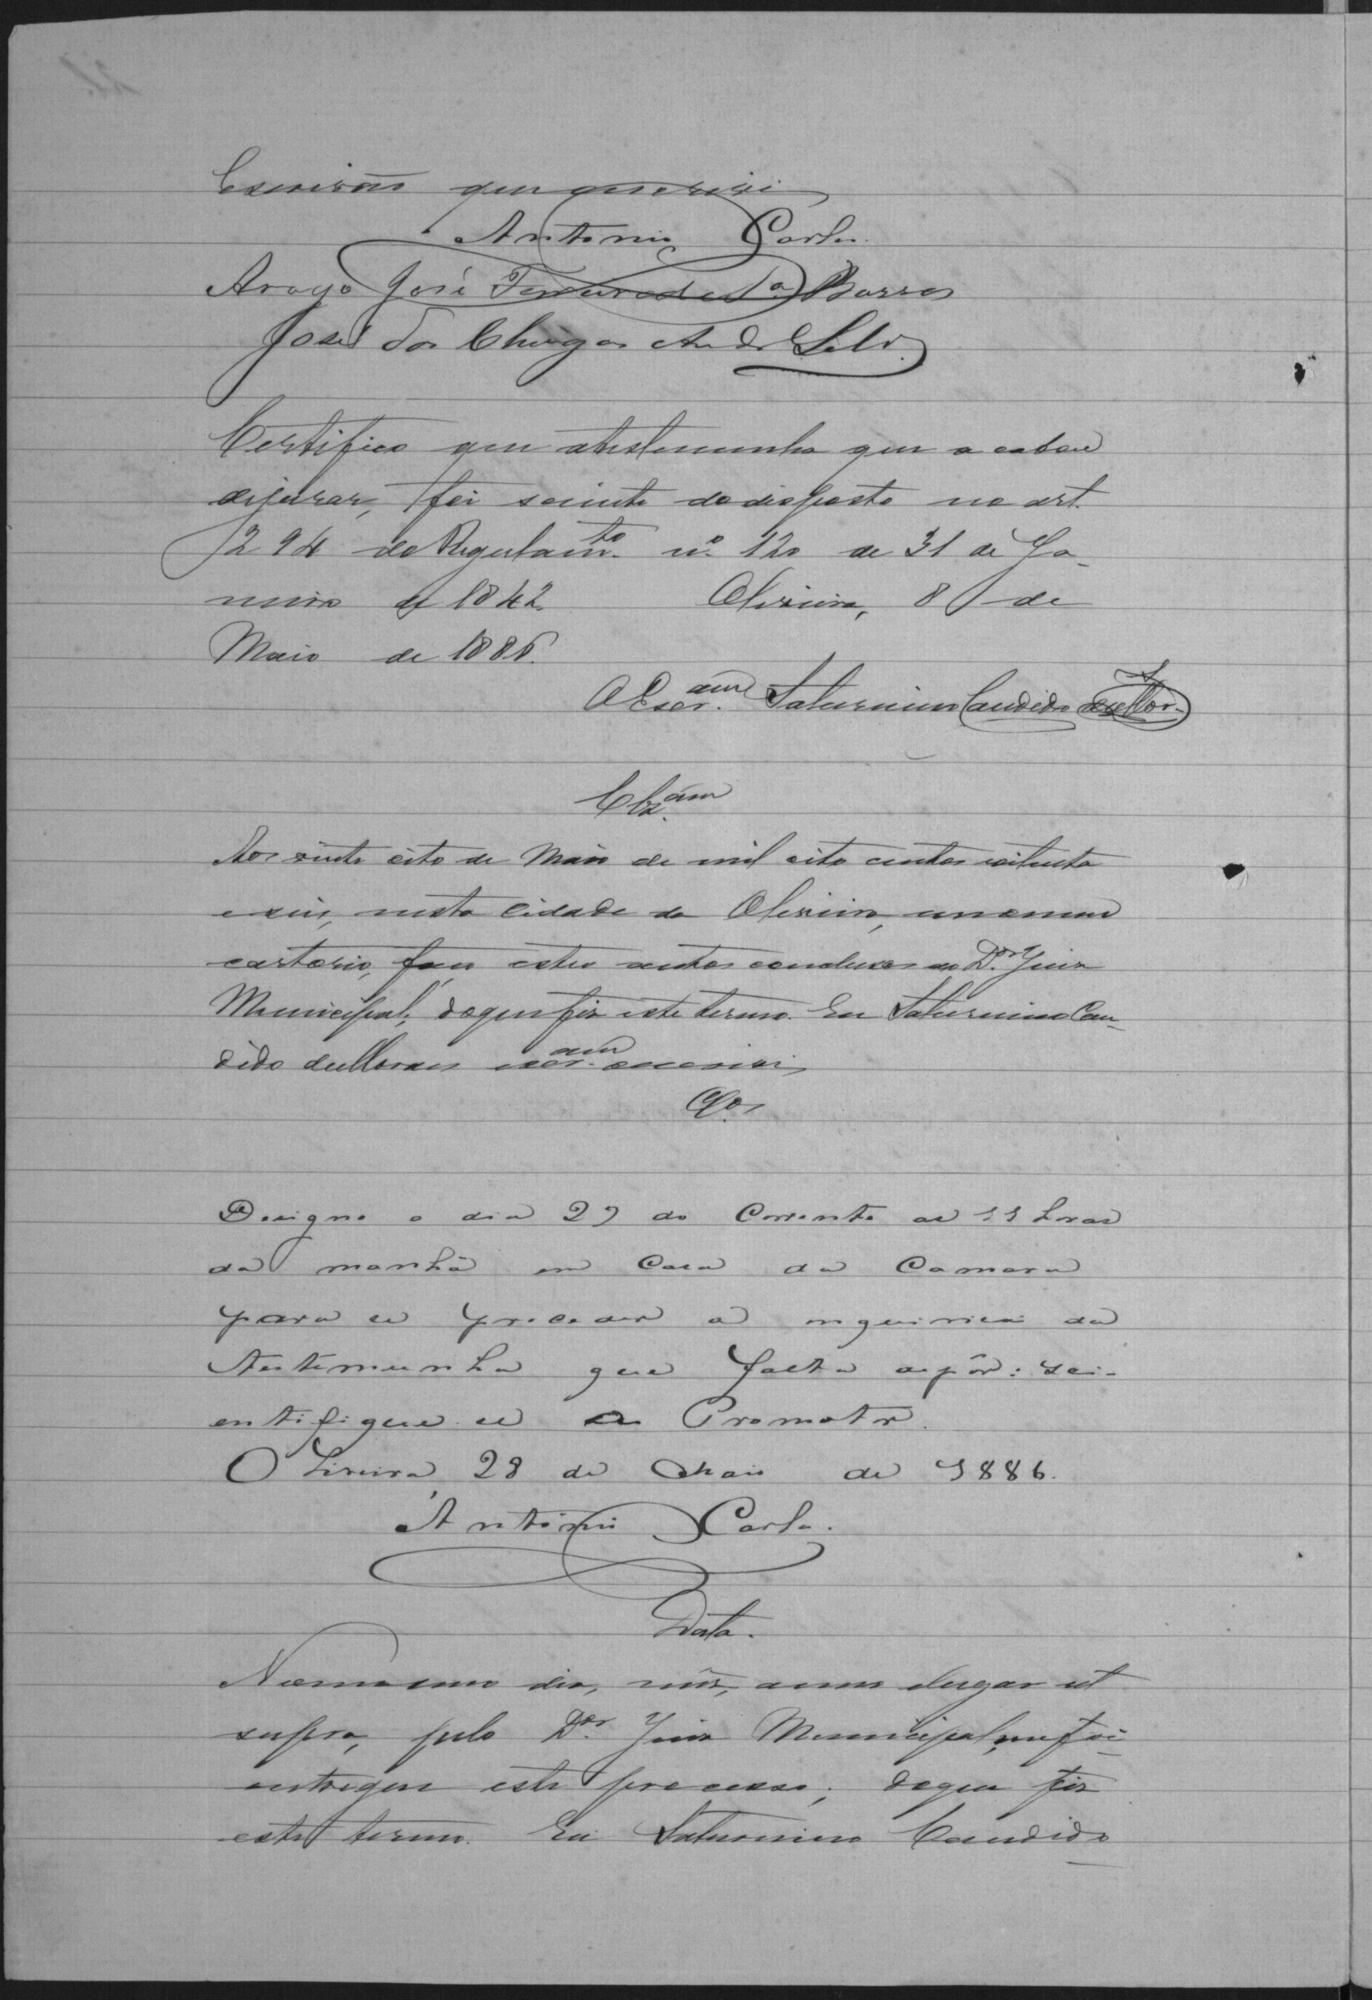 Escrivão que escrivi
Antonio Carlos
Arogo José Ferreira de Sa. Barros
José das Chagas And.e Silv.a
Certifico que atestemunha que acabou
dejurar, foi sciente dodisposto no art.
294 do Regulam.to nº 120 de 31 de Ja-
neiro de 1842. Oliveira, 8 de
Maio de 1886.
O Escr.am Saturnino Candido deMor.
Clz.am
Aos vinte oito de Maio de mil oito centos eoitenta
eseis, nesta Cidade da Oliveira, emmeu
cartorio, faço estes autos conclusos ao D.or Juiz
Municipal; doque fiz este termo. Eu Saturnino Can-
dido deMoraes escr.am oescrivi
Clos
Designo o dia 29 do Corrente as 11 horas
da manhã em Casa da Camara
para se proceder a inquirição da
testemunha que falta depôr: sci-
entifique se ao Promotor.
Oliveira, 28 de Maio de 1886.
Antonio Carlos.
Data.
Nomesmo dia, mês, anno elugar ut
supra, pelo D.or Juiz Municipal, mefoi
entregue este processo; doque fiz
este termo. Eu Saturnino Candido